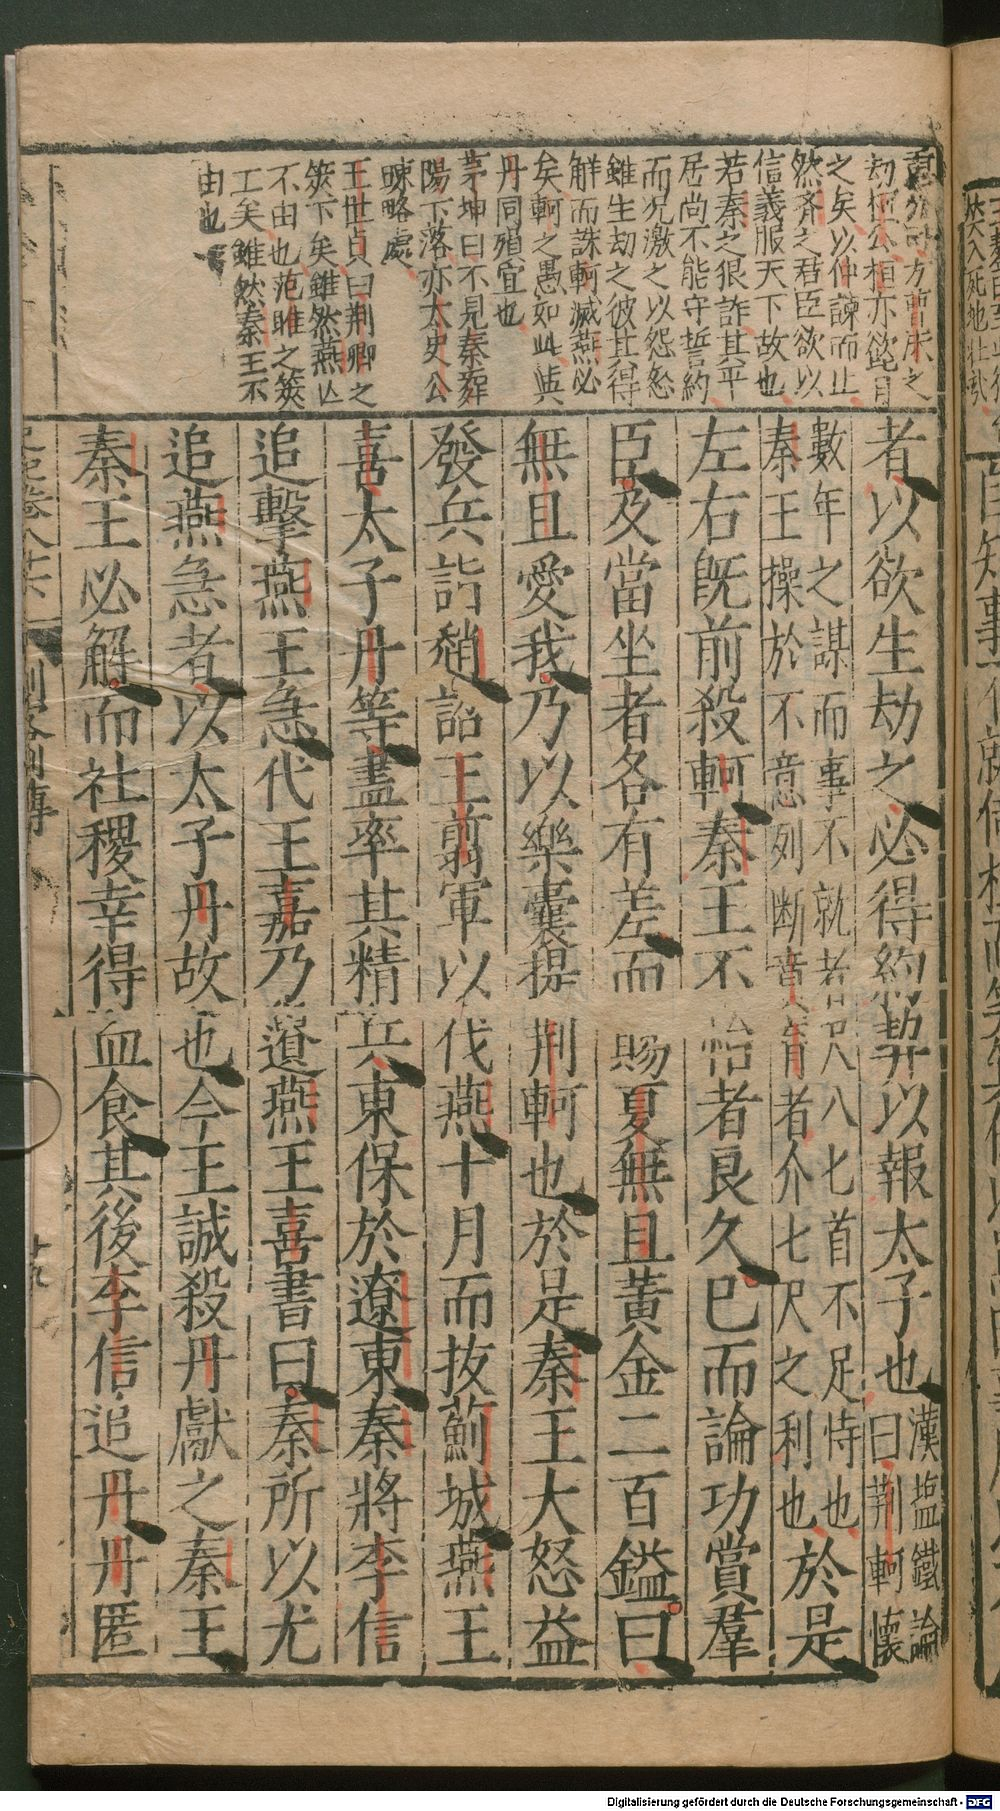 方曹沬之
劫桓公桓亦
之矣以仲諫而止
然齊之君臣欲以
信義服天下故也
若秦之狠詐其平
居尚不能守誓約
而况激之以怨怒
雖生劫之彼其得
觧而誅軻滅燕必
矣軻之愚如此與
丹同殞宜也
茅坤曰不見秦舞
陽下落亦太史公
踈略處
王世貞曰荆卿之
筴下矣雖然燕亾
不由也范雎之筴
工矣雖然秦王不
由也
者以欲生劫之必得約契以報太子也漢塩鐵論曰荆軻懷
數年之謀而事不就者尺八匕首不足恃也秦王操於不意列斷賁育者介七尺之利也於是
左右既前殺軻秦王不怡者良久已而論功賞羣
臣及當坐者各有差而賜夏無且黃金二百鎰曰
無且愛我乃以藥囊提荆軻也於是秦王大怒益
發兵詣趙詔王翦軍以伐燕十月而拔薊城燕王
喜太子丹等盡率其精兵東保於遼東秦將李信
追擊燕王急代王嘉乃遺燕王喜書曰秦所以尤
追燕急者以太子丹故也今王誠殺丹獻之秦王
秦王必解而社稷幸得血食其後李信追丹丹匿
史記卷八十六
刺客列傳
十九
Digitalisierung gefördert durch die Deutsche Forschungsgemeinschaft - DFG